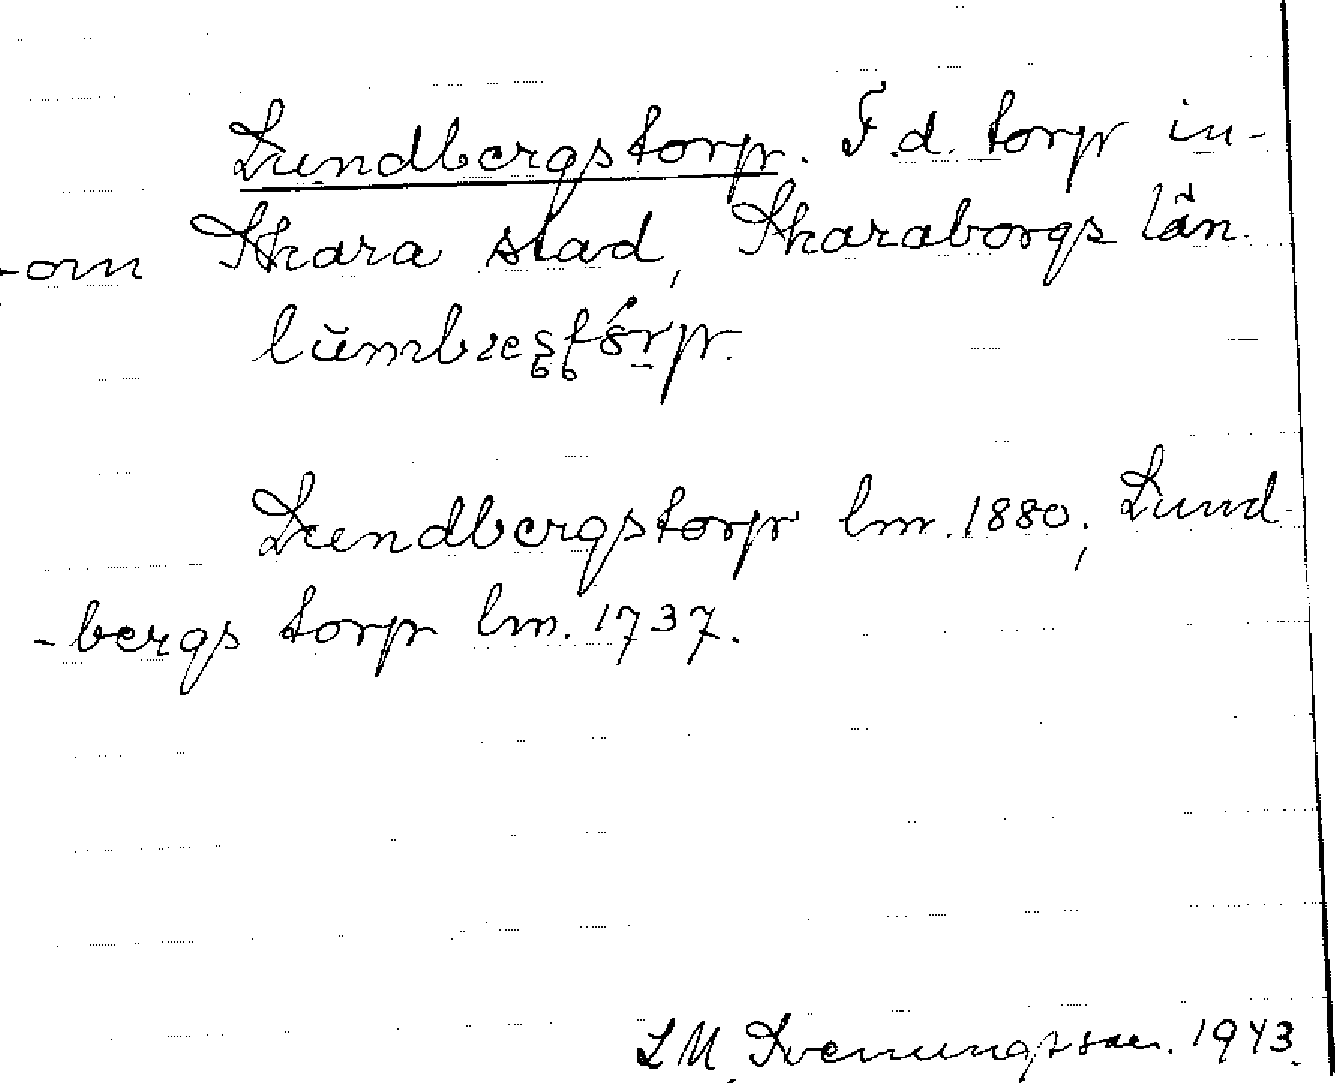 Lundbergstorp. F.d. torp in-
-om Skara stad, Skaraborgs län.
Lundbergstorp lm. 1880; Lund-
-bergs torp lm. 1737.
L M Svenungsson. 1943.